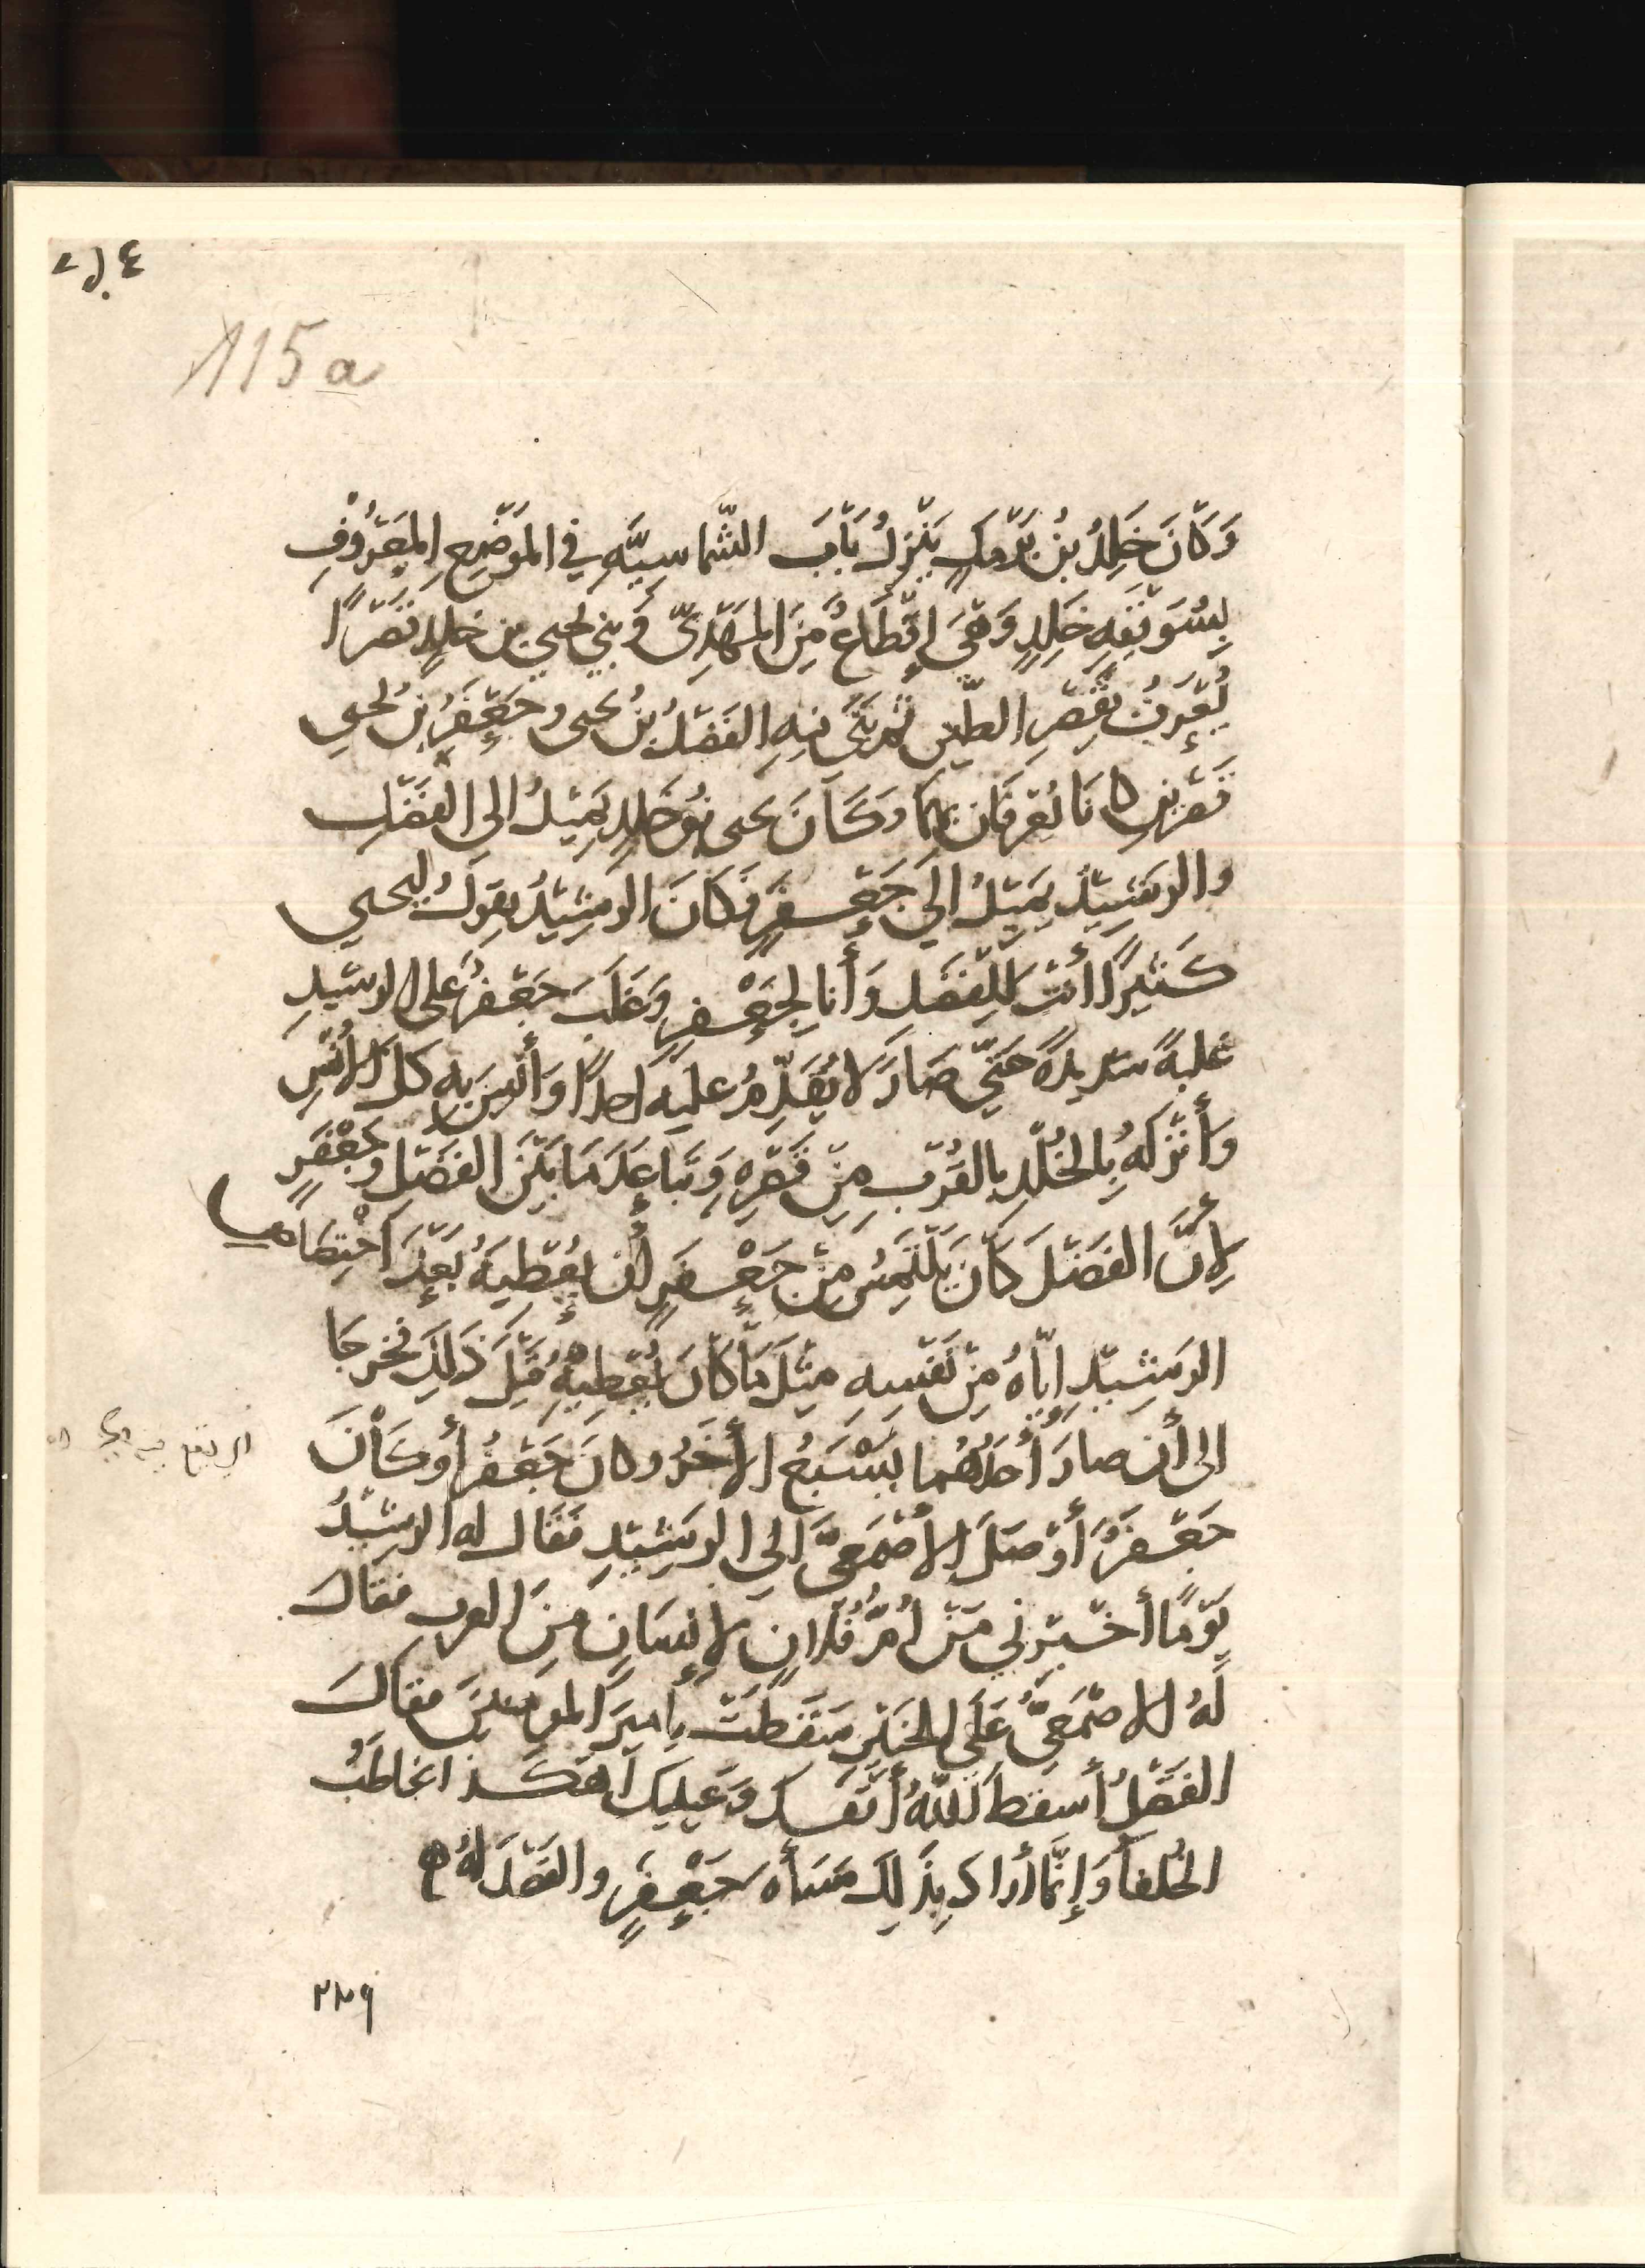 115a
وَكَانَ خَلِدُ بنُ بَرْمَكٍ يَنْزِلُ بَابَ الشَّمَاسِيَّهِ في المَوْضِعِ المَعْرُوْفِ
بِسُوَيْقَهِ خَلِدٍ وَهْيَ إقْطَاعٌ مِنَ المَهْدِيّ وَبني يحيي بن خلدٍ قَصْرًا
يُعْرَفُ بقَصْرِ الطّينِ ثم بَنَى فيهِ الفَضْلُ بْنُ يحيى وجَعْفَرُ بنُ يحيى
قَصْرَيْنِ كانَا يُعْرَفَانِ بِهِمَا وَكَانَ يحيى بنُ خَلِدٍ يَمِيْلُ الى الفَضْلِ
والرَشِيْدُ يَمِيْلُ إلَى جَعْفَرٍ فَكَانَ الرَشِيْدُ يقولُ ليحيى
كَثِيرًا أنْتَ لِلفَضْلِ وَأَنا لِجَعْفَرٍ وَغَلَبَ جَعْفَرُ عَلى الرشيدِ
غلبةً شديدةً حَتَّى صَارَ لا يُقَدِّمُ عليه احدًا وَأَنِسَ بِهِ كلَّ الأُنْسِ
وَأَنْزَلَهُ بِالخُلْدِ بالقُرْبِ مِنْ قَصْرِهِ وَتَبَاعَدَ مَا بَيْنَ الفَضْلِ وجَعْفَرٍ
لِأَنَّ الفَضْلَ كَانَ يَلْتَمِسُ مِنْ جَعْفَرٍ أن يُعْطِيَهُ بَعْدَ اخْتِصَاصِ
الرَشِيْدِ إيّاهُ مِنْ نَفْسِهِ مِثْلَ مَا كَانَ يُعْطِيْهُ قَبْلَ ذَلِكَ فخرجَا
الى أن صارَ أَحَدُهُما يَسْبَعُ الأخَرَ وكانَ جَعْفَرُ أو كَانَ
جَعْفَرٌ أَوْصَلَ الأَصْمَعِيَّ إلى الرَشِيْدِ فَقَال له الرشيْدُ
يَوْمًا أخْبِرْنِي مَنْ أُمُّ فُلانٍ لإنسَانٍ مِنَ العرب فقالَ
لَهُ الأصْمَعِيُّ عَلَى الخَبَيْرِ سَقَطْتَ يا ميرَ المومنينَ فقالَ
الفَضْلُ أسقطَ اللّهُ أنْفَكَ وَعَيْنَيْكَ أهَكَذا تخاطَبُ
الخُلفا وَإنَّمَا أرادَ بِذَلِكَ مَسَأه جَعْفَرٍ والفَضْلُ لهُ